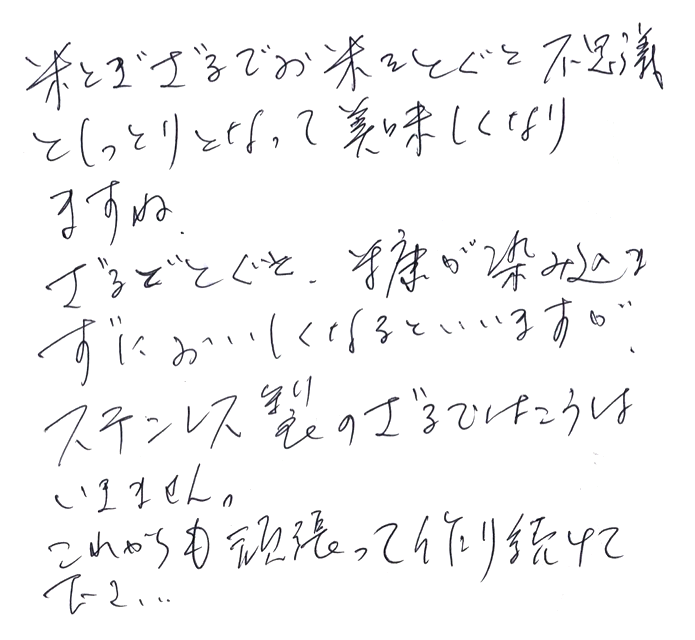 米とぎざるでお米をとぐと不思議
としっとりとなって美味しくなり
ますね.
ざるでとぐと、糠が染み込ま
ずにおいしくなるといいますが、
ステンレス製のざるではこうは
いきません。
これからも頑張って作り続けて
下さい…